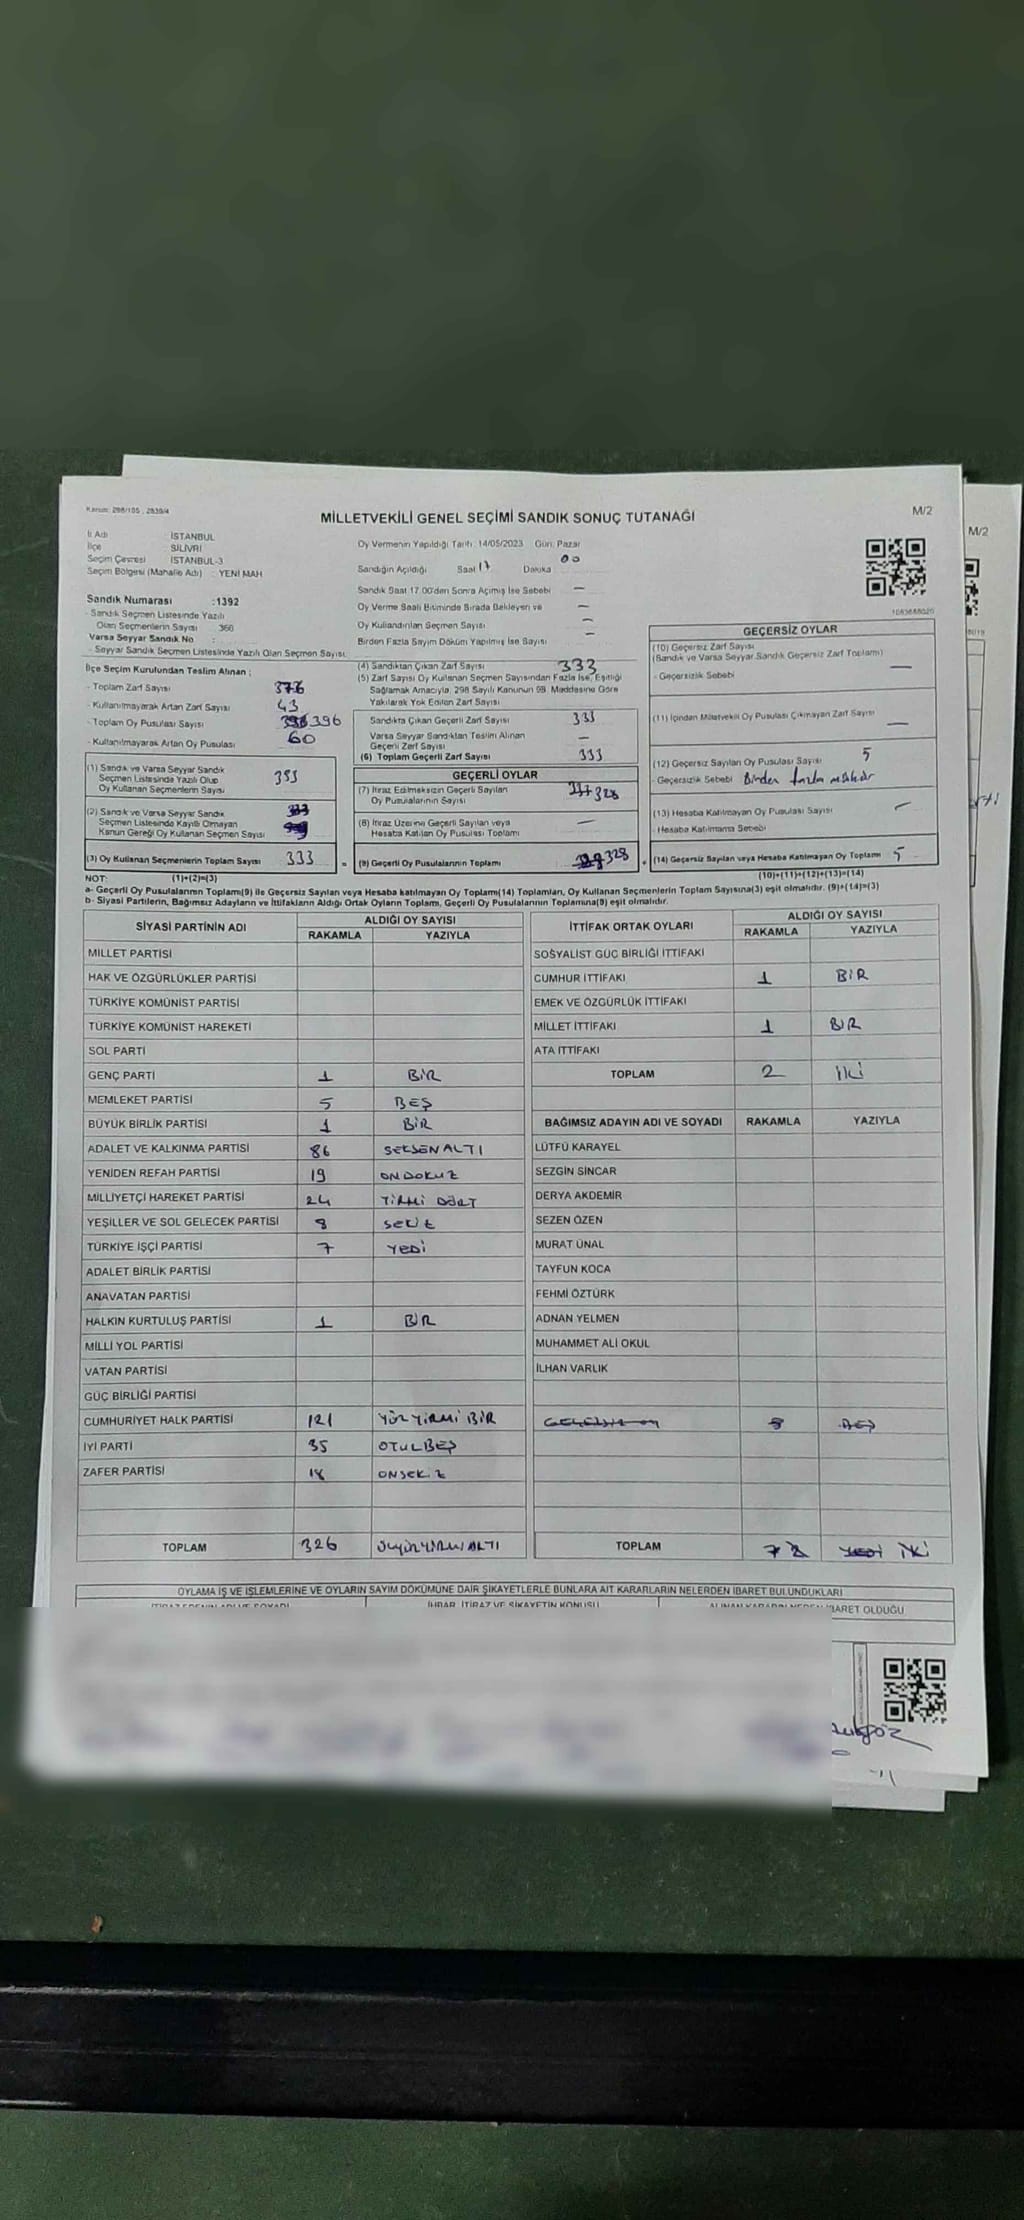 Kanun: 298/105 , 2839/4
MİLLETVEKİLİ GENEL SEÇİMİ SANDIK SONUÇ TUTANAĞI
M/2
M/2
İl Adı İSTANBUL
İlçe SİLİVRİ
Seçim Çevresi İSTANBUL-3
Seçim Bölgesi (Mahalle Adı) : YENİ MAH
Oy Vermenin Yapıldığı Tarih: 14/05/2023 Gün: Pazar
Sandığın Açıldığı Saat 17 Dakika 00
Sandık Saat 17.00'den Sonra Açılmış İse Sebebi —
Oy Verme Saati Bitiminde Sırada Bekleyen ve —
Oy Kullandırılan Seçmen Sayısı —
Birden Fazla Sayım Döküm Yapılmış İse Sayısı
Sandık Numarası :1392
- Sandık Seçmen Listesinde Yazılı
Olan Seçmenlerin Sayısı 360
Varsa Seyyar Sandık No :
- Seyyar Sandık Seçmen Listesinde Yazılı Olan Seçmen Sayısı:
İlçe Seçim Kurulundan Teslim Alınan ;
- Toplam Zarf Sayısı 376
- Kullanılmayarak Artan Zarf Sayısı 43
- Toplam Oy Pusulası Sayısı 396
- Kullanılmayarak Artan Oy Pusulası 60
(1) Sandık ve Varsa Seyyar Sandık
Seçmen Listesinde Yazılı Olup
Oy Kullanan Seçmenlerin Sayısı 333
(2) Sandık ve Varsa Seyyar Sandık
Seçmen Listesinde Kayıtlı Olmayan
Kanun Gereği Oy Kullanan Seçmen Sayısı
(3) Oy Kullanan Seçmenlerin Toplam Sayısı 333 =
(4) Sandıktan Çıkan Zarf Sayısı 333
(5) Zarf Sayısı Oy Kullanan Seçmen Sayısından Fazla İse, Eşitliği
Sağlamak Amacıyla, 298 Sayılı Kanunun 98. Maddesine Göre
Yakılarak Yok Edilen Zarf Sayısı
Sandıkta Çıkan Geçerli Zarf Sayısı 333
Varsa Seyyar Sandıktan Teslim Alınan
Geçerli Zarf Sayısı —
(6) Toplam Geçerli Zarf Sayısı 333
GEÇERLİ OYLAR
(7) İtiraz Edilmeksizin Geçerli Sayılan
Oy Pusulalarının Sayısı 328
(8) İtiraz Üzerine Geçerli Sayılan veya
Hesaba Katılan Oy Pusulası Toplamı —
(9) Geçerli Oy Pusulalarının Toplamı 328 +
GEÇERSİZ OYLAR
(10) Geçersiz Zarf Sayısı
(Sandık ve Varsa Seyyar Sandık Geçersiz Zarf Toplamı) —
- Geçersizlik Sebebi
(11) İçinden Milletvekili Oy Pusulası Çıkmayan Zarf Sayısı —
(12) Geçersiz Sayılan Oy Pusulası Sayısı 5
- Geçersizlik Sebebi Birden fazla mühür
(13) Hesaba Katılmayan Oy Pusulası Sayısı —
- Hesaba Katılmama Sebebi
(14) Geçersiz Sayılan veya Hesaba Katılmayan Oy Toplamı 5
NOT: (1)+(2)=(3)
(10)+(11)+(12)+(13)=(14)
a- Geçerli Oy Pusulalarının Toplamı(9) ile Geçersiz Sayılan veya Hesaba katılmayan Oy Toplamı(14) Toplamları, Oy Kullanan Seçmenlerin Toplam Sayısına(3) eşit olmalıdır. (9)+(14)=(3)
b- Siyasi Partilerin, Bağımsız Adayların ve İttifakların Aldığı Ortak Oyların Toplamı, Geçerli Oy Pusulalarının Toplamına(9) eşit olmalıdır.
SİYASİ PARTİNİN ADI ALDIĞI OY SAYISI
RAKAMLA YAZIYLA
MİLLET PARTİSİ
HAK VE ÖZGÜRLÜKLER PARTİSİ
TÜRKİYE KOMÜNİST PARTİSİ
TÜRKİYE KOMÜNİST HAREKETİ
SOL PARTİ
GENÇ PARTİ 1 BİR
MEMLEKET PARTİSİ 5 BEŞ
BÜYÜK BİRLİK PARTİSİ 1 BİR
ADALET VE KALKINMA PARTİSİ 86 SEKSENALTI
YENİDEN REFAH PARTİSİ 19 ONDOKUZ
MİLLİYETÇİ HAREKET PARTİSİ 24 YİRMİ DÖRT
YEŞİLLER VE SOL GELECEK PARTİSİ 8 SEKİZ
TÜRKİYE İŞÇİ PARTİSİ 7 YEDİ
ADALET BİRLİK PARTİSİ
ANAVATAN PARTİSİ
HALKIN KURTULUŞ PARTİSİ 1 BİR
MİLLİ YOL PARTİSİ
VATAN PARTİSİ
GÜÇ BİRLİĞİ PARTİSİ
CUMHURİYET HALK PARTİSİ 121 YÜZ YİRMİ BİR
İYİ PARTİ 35 OTUZBEŞ
ZAFER PARTİSİ 18 ONSEKİZ
TOPLAM 326 ÜÇYÜZYİRMİALTI
İTTİFAK ORTAK OYLARI ALDIĞI OY SAYISI
RAKAMLA YAZIYLA
SOSYALİST GÜÇ BİRLİĞİ İTTİFAKI
CUMHUR İTTİFAKI 1 BİR
EMEK VE ÖZGÜRLÜK İTTİFAKI
MİLLET İTTİFAKI 1 BİR
ATA İTTİFAKI
TOPLAM 2 İKİ
BAĞIMSIZ ADAYIN ADI VE SOYADI RAKAMLA YAZIYLA
LÜTFÜ KARAYEL
SEZGİN SİNCAR
DERYA AKDEMİR
SEZEN ÖZEN
MURAT ÜNAL
TAYFUN KOCA
FEHMİ ÖZTÜRK
ADNAN YELMEN
MUHAMMET ALİ OKUL
İLHAN VARLIK
GEÇERSİZ OY 5 BEŞ
TOPLAM 7 2 YEDİ İKİ
OYLAMA İŞ VE İŞLEMLERİNE VE OYLARIN SAYIM DÖKÜMÜNE DAİR ŞİKAYETLERLE BUNLARA AİT KARARLARIN NELERDEN İBARET BULUNDUKLARI
İTİRAZ EDENİN ADI VE SOYADI İHBAR, İTİRAZ VE ŞİKAYETİN KONUSU ALINAN KARARIN NEDEN İBARET OLDUĞU